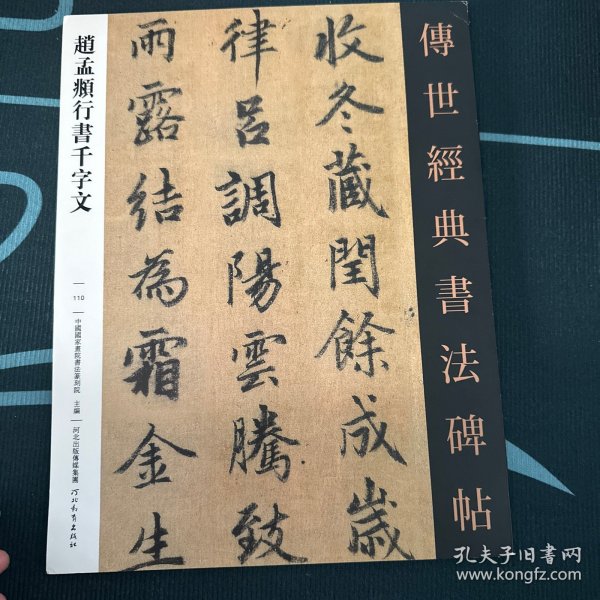 傳世經典書法碑帖
收冬藏閏餘成歲
律呂調陽雲騰致
雨露結為霜金生
趙孟頫行書千字文
110
中國國家畫院書法篆刻院 主編
河北出版傳媒集團
河北教育出版社
孔夫子旧书网
www.kongfz.com